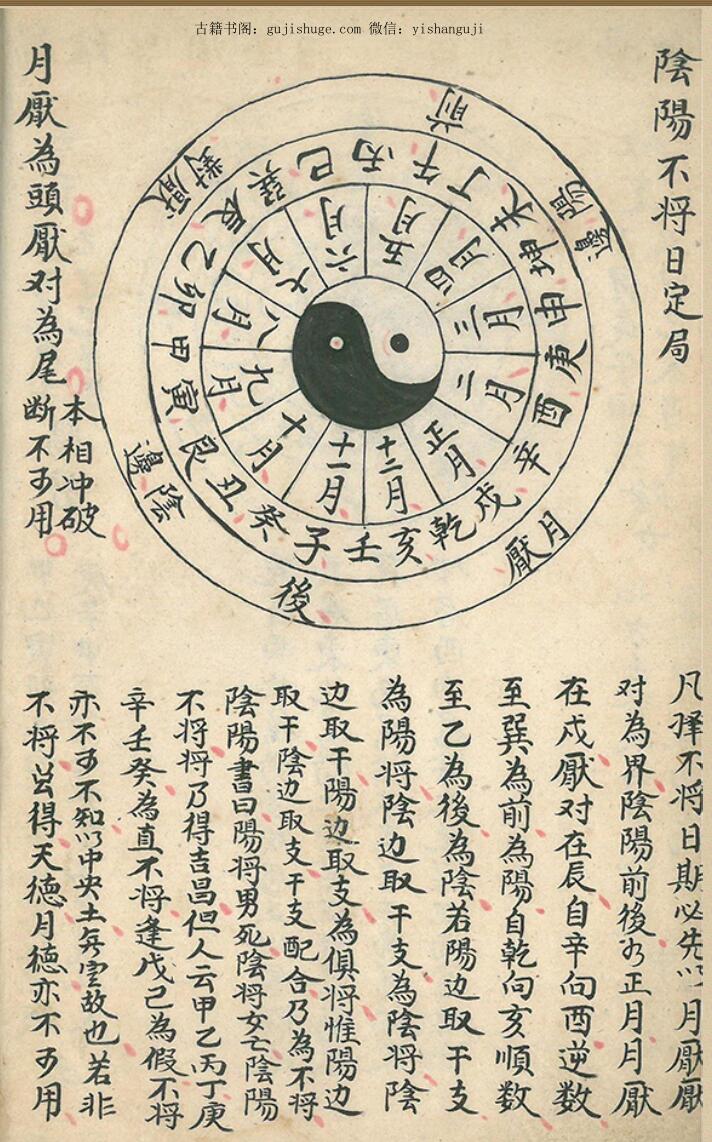 古籍书阁：gujishuge.com 微信：yishanguji
陰陽不将日定局
前
陽邊
月厭
後
陰邊
對厭
丙午丁未坤申庚酉辛戌乾亥壬子癸丑艮寅甲卯乙辰巽巳
正月
二月
三月
四月
五月
六月
七月
八月
九月
十月
十一月
十二月
月厭為頭厭对為尾
本相冲破
断不可用
凡择不将日期必先以月厭厭
对為界陰陽前後如正月月厭
在戌厭对在辰自辛向酉逆数
至巽為前為陽自乾向亥順数
至乙為後為陰若陽边取干支
為陽将陰边取干支為陰将陰
边取干陽边取支為俱将惟陽边
取干陰边取支干支配合乃為不将
陰陽書曰陽将男死陰将女亡陰陽
不将将乃得吉昌但人云甲乙丙丁庚
辛壬癸為直不将逢戊己為假不将
亦不可不知以中央土無定故也若非
不将日得天德月德亦不可用